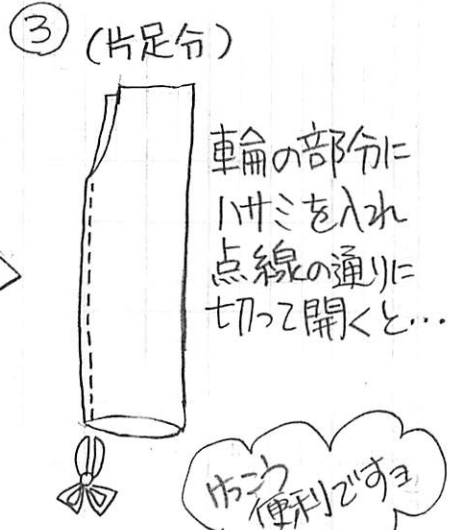 ③ (片足分)
輪の部分に
ハサミを入れ
点線の通りに
切って開くと…
けっこう
便利ですョ